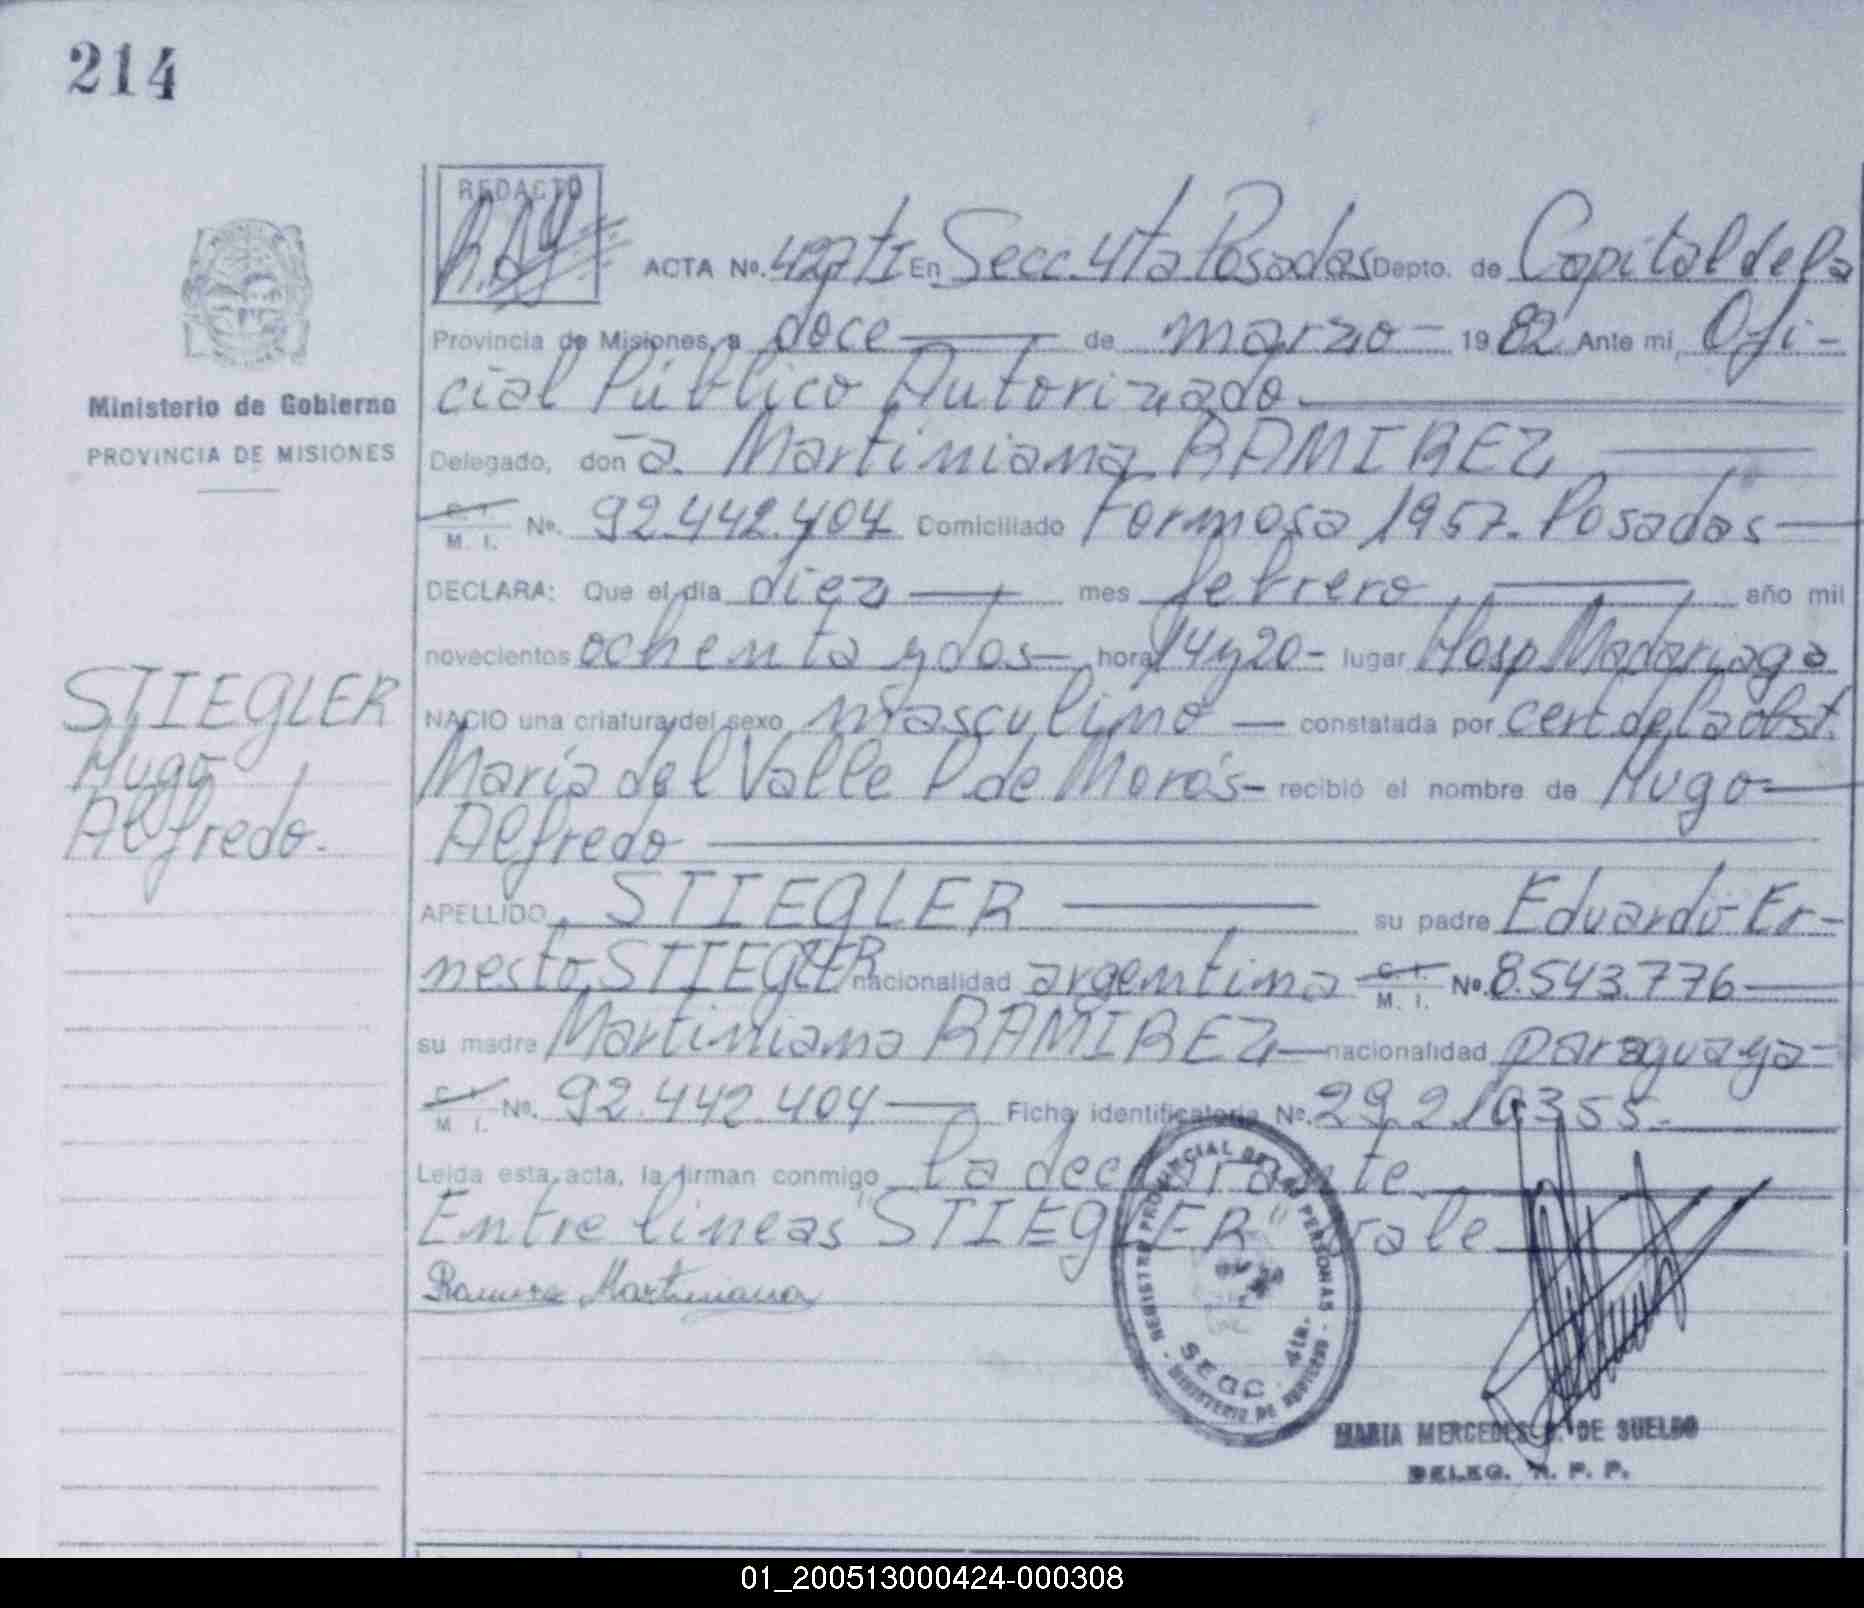 214
REDACTO
ACTA No. 427 tI En Secc. 4ta Posadas Depto. de Capital de la
Provincia de Misiones, a doce de marzo - 1982 Ante mi, Ofi-
cial Público Autorizado
Ministerio de Gobierno
PROVINCIA DE MISIONES
Delegado, don a. Martiniana RAMIREZ
C. I.
M. I. No. 92.442.404 Domiciliado Formosa 1957. Posadas
DECLARA: Que el día diez mes febrero año mil
novecientos ochenta y dos - hora 14 y 20 - lugar Hosp Madariaga
STIEGLER
Hugo
Alfredo.
NACIO una criatura del sexo masculino - constatada por cert. de la obst.
María del Valle P. de Morás - recibió el nombre de Hugo
Alfredo
APELLIDO STIEGLER su padre Eduardo Er-
nesto STIEGLER nacionalidad argentina C. I. M. I. No. 8.543.776
su madre Martiniana RAMIREZ nacionalidad paraguaya -
C. I.
M. I. No. 92.442.404 Ficha identificatoria No. 29.210355.
Leída esta acta, la firman conmigo la declarante
Entre lineas "STIEGLER" vale
Ramirez Martiniana
REGISTRO PROVINCIAL DE LAS PERSONAS
MINISTERIO DE GOBIERNO
SECC. 4ta.
MARIA MERCEDES DE SUELDO
DELEG. R. P. P.
01_200513000424-000308